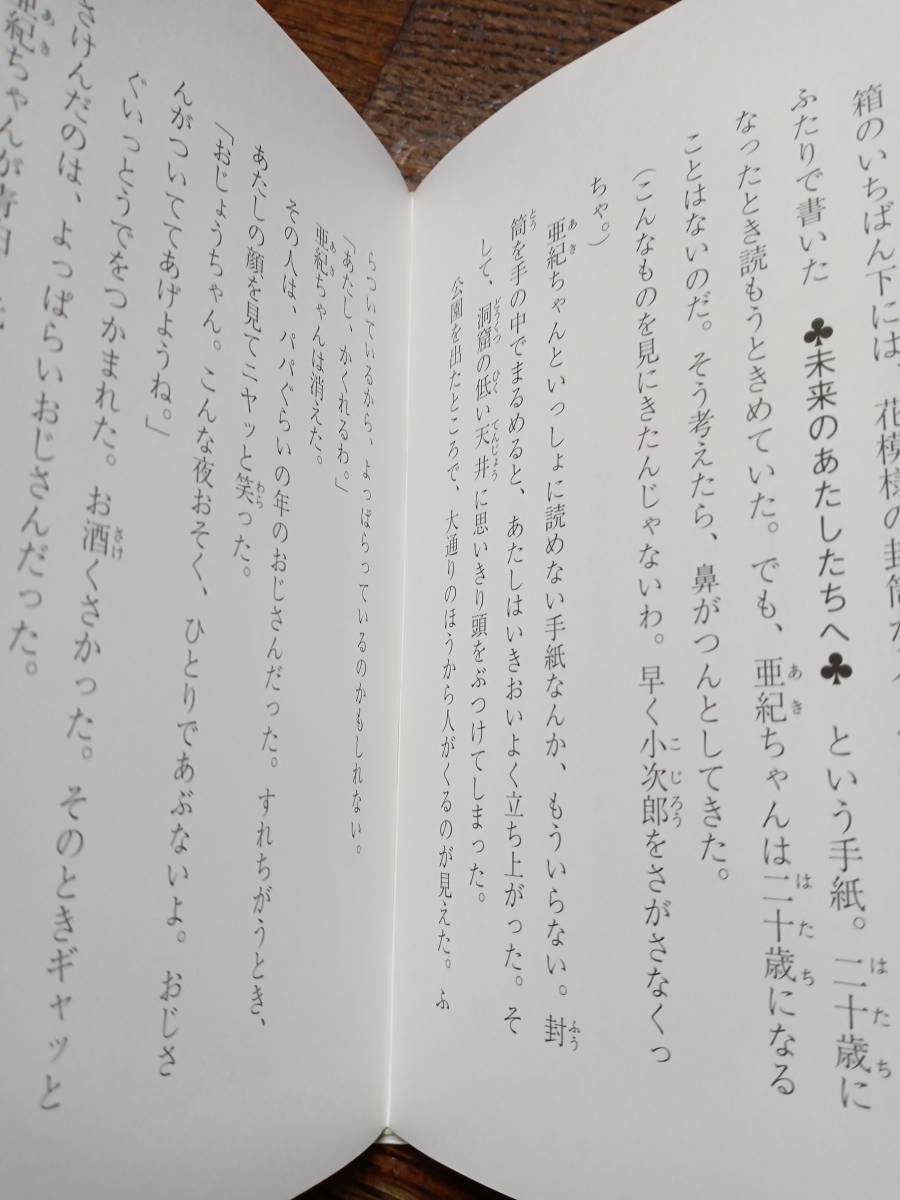 箱のいちばん下には、花模様の封筒が
ふたりで書いた　♣未来のあたしたちへ♣　という手紙。二十歳に
なったとき読もうときめていた。でも、亜紀ちゃんは二十歳になる
ことはないのだ。そう考えたら、鼻がつんとしてきた。
（こんなものを見にきたんじゃないわ。早く小次郎をさがさなくっ
ちゃ。）
亜紀ちゃんといっしょに読めない手紙なんか、もういらない。封
筒を手の中でまるめると、あたしはいきおいよく立ち上がった。そ
して、洞窟の低い天井に思いきり頭をぶつけてしまった。
公園を出たところで、大通りのほうから人がくるのが見えた。ふ
らついているから、よっぱらっているのかもしれない。
「あたし、かくれるわ。」
亜紀ちゃんは消えた。
その人は、パパぐらいの年のおじさんだった。すれちがうとき、
あたしの顔を見てニヤッと笑った。
「おじょうちゃん。こんな夜おそく、ひとりであぶないよ。おじさ
んがついててあげようね。」
ぐいっとうでをつかまれた。お酒くさかった。そのときギャッと
さけんだのは、よっぱらいおじさんだった。
亜紀ちゃんが青白